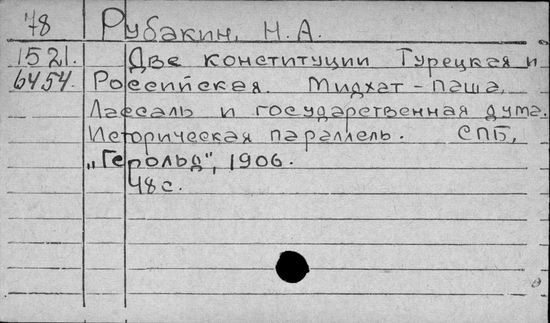 78 Рубакин, Н.А.
1521. Две конституции Турецкая и
6454. Российская. Мидхат-паша,
Лассаль и государственная дума.
Историческая параллель. СПБ,
„Герольд", 1906.
48 с.